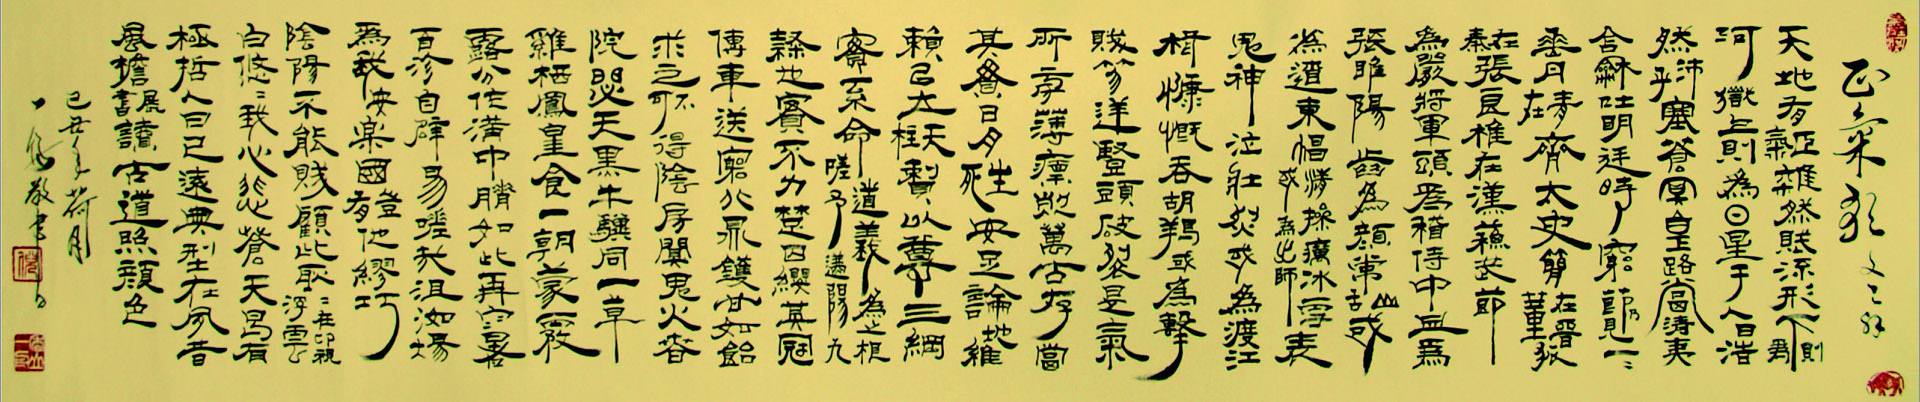 正氣歌 文天祥
天地有正氣雜然賦流形下則為
河嶽上則為日星于人曰浩
然沛乎塞蒼冥皇路當清夷
含龢吐明廷時窮節見一一
垂丹青在齊太史簡在晉董狐
在秦張良椎在漢蘇武節
為嚴將軍頭為嵇侍中血為
張睢陽齒為顏常山舌或
為遼東帽清操厲冰雪或為出師表
鬼神泣壯烈或為渡江
楫慷慨吞胡羯或為擊
賊笏逆豎頭破裂是氣
所旁薄凜烈萬古存當
其貫日月生死安足論地維
賴以立天柱賴以尊三綱
實系命道義為之根嗟予遘陽九
隸也實不力楚囚纓其冠
傳車送窮北鼎鑊甘如飴
求之不可得陰房闃鬼火春
院閟天黑牛驥同一草
雞栖鳳皇食一朝蒙霧
露分作溝中瘠如此再寒暑
百沴自辟易嗟哉沮洳場
為我安樂國豈有他繆巧
陰陽不能賊顧此耿耿在仰視浮雲
白悠悠我心悲蒼天曷有
極哲人日已遠典型在夙昔
風檐展書讀古道照顏色
己丑年荷月